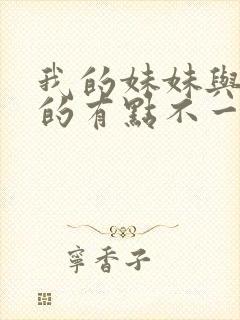 我的妹妹與
的有點不一
寧香子